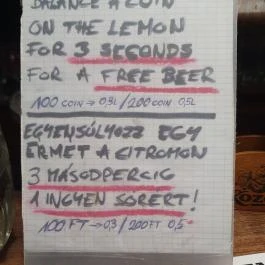 BALANCE A COIN
ON THE LEMON
FOR 3 SECONDS
FOR A FREE BEER
100 COIN → 0,3L / 200 COIN 0,5L
EGYENSÚLYOZZ EGY
ÉRMET A CITROMON
3 MÁSODPERCIG
1 INGYEN SÖRÉRT!
100 FT → 0,3 / 200 FT 0,5